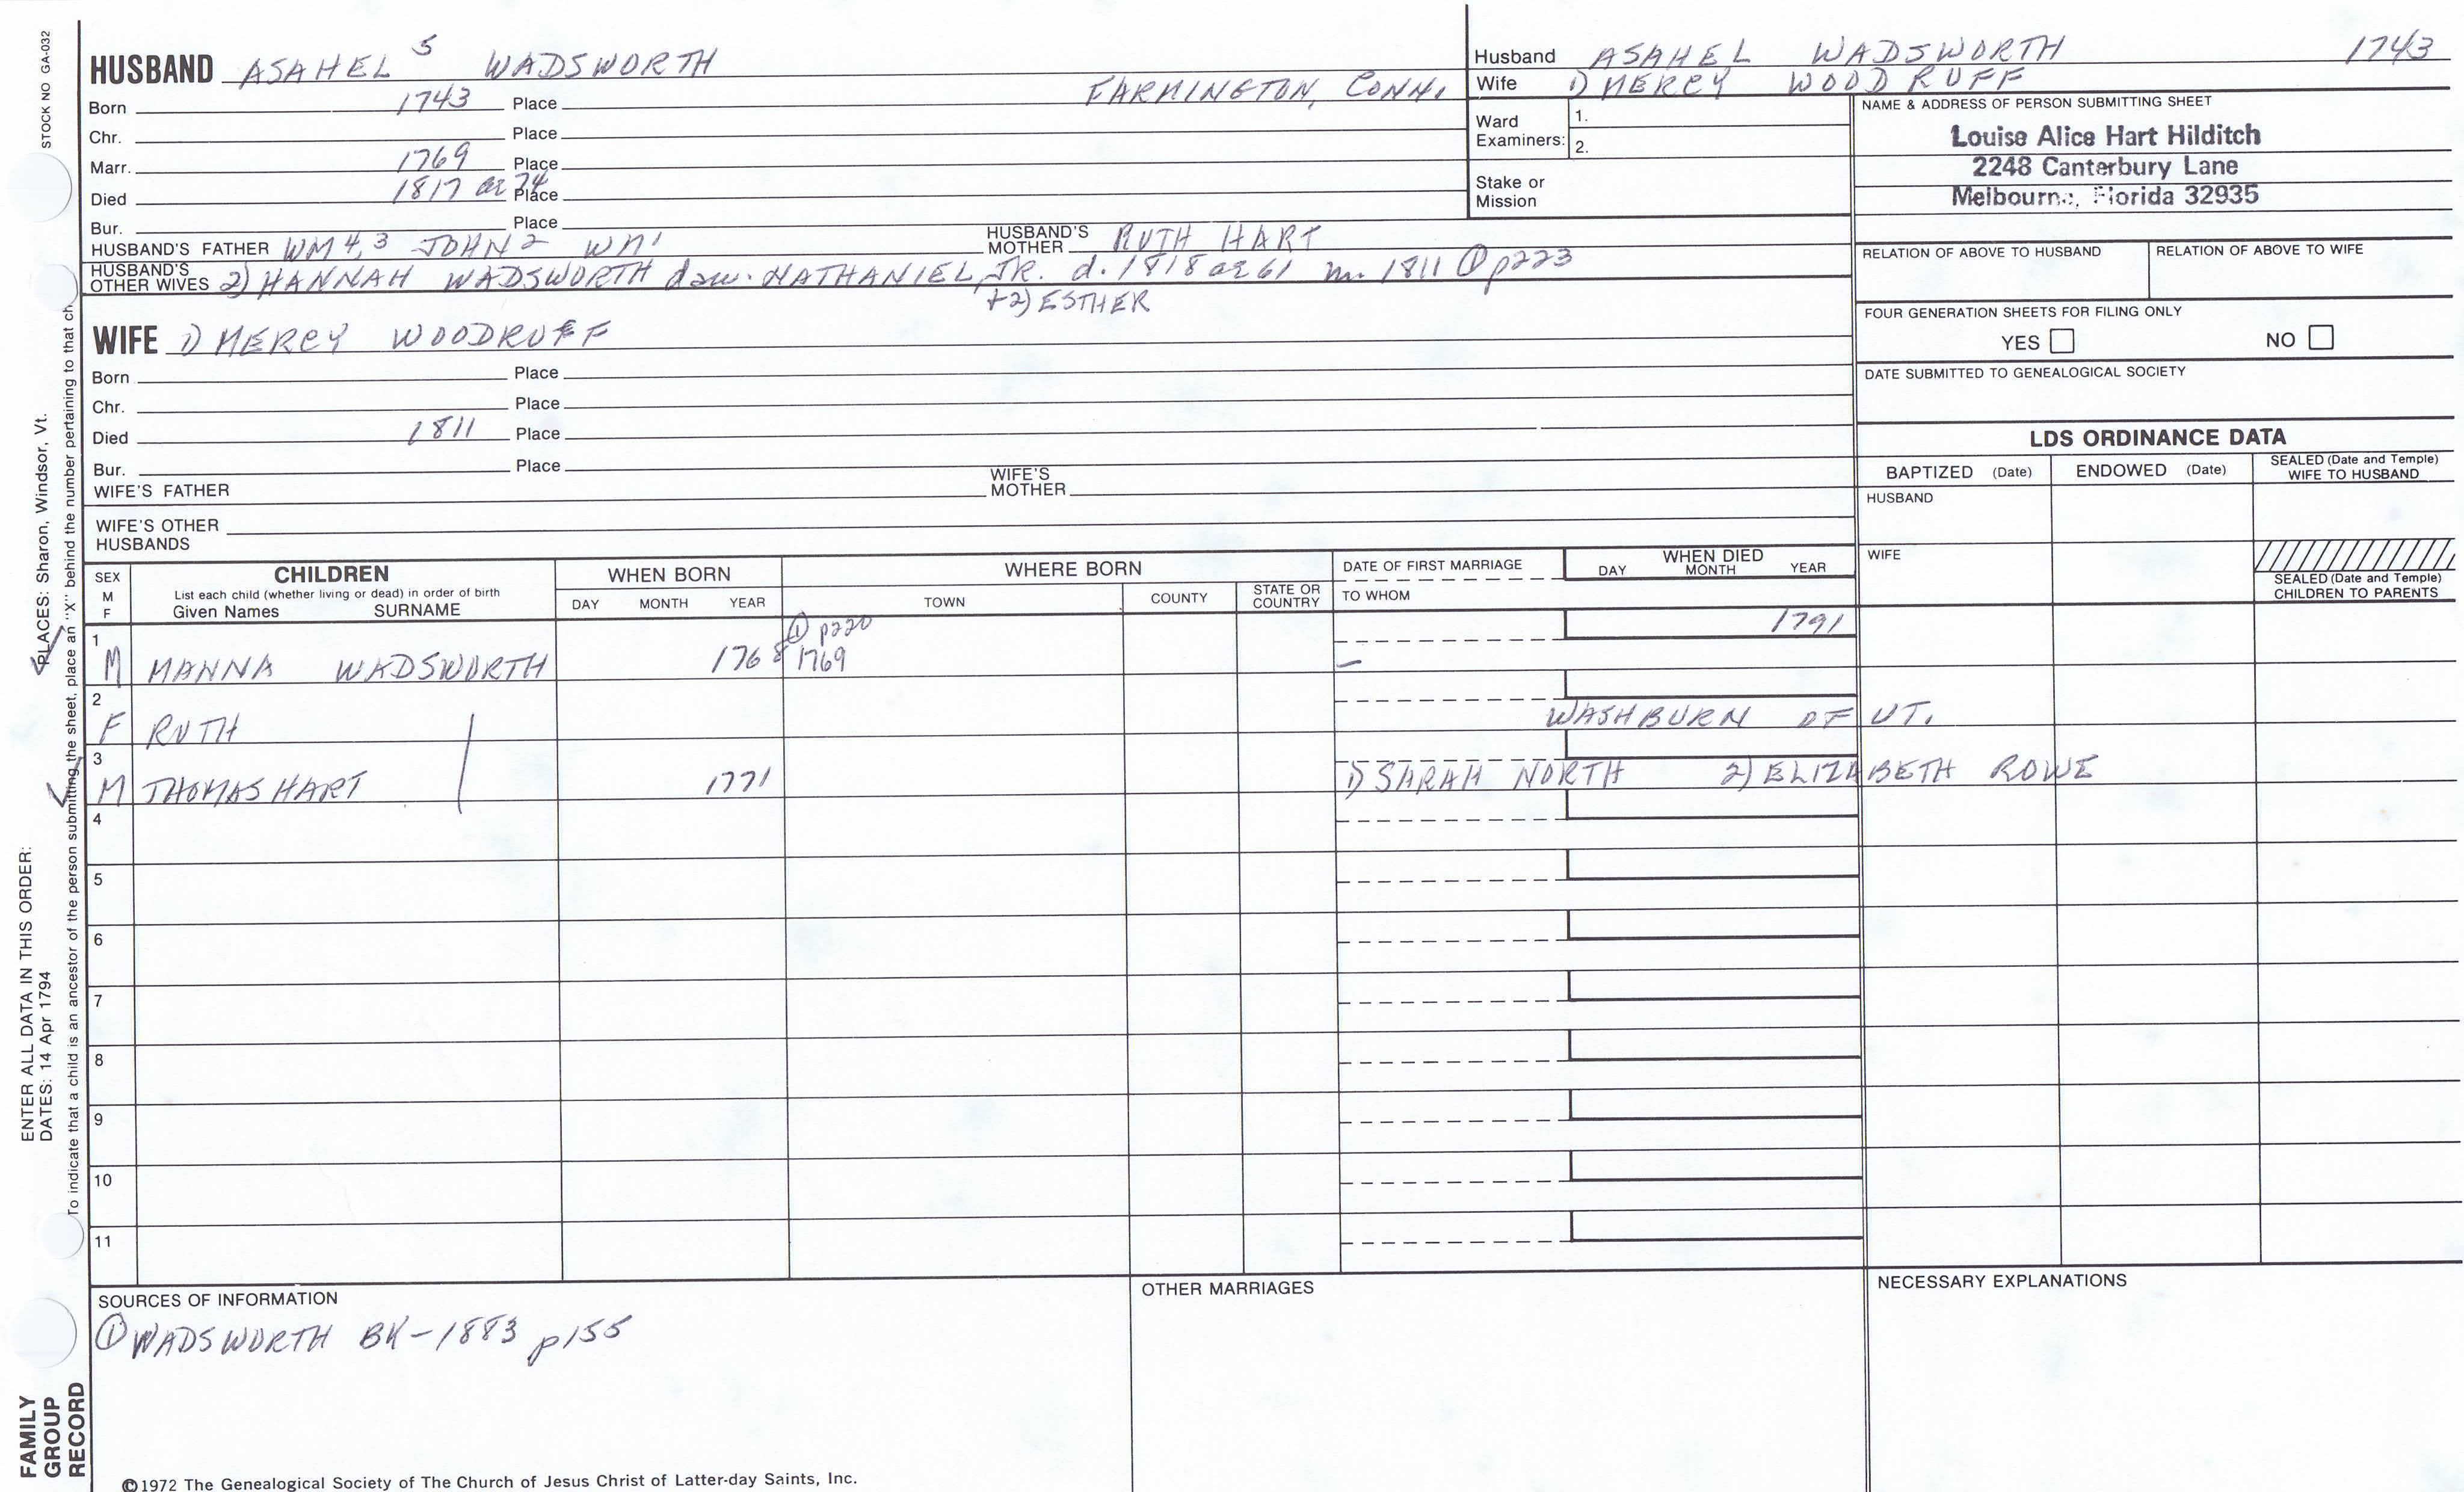 STOCK NO GA-032
HUSBAND ASAHEL 5 WADSWORTH
Born 1743 Place FARMINGTON, CONN.
Chr. Place
Marr. 1769 Place
Died 1817 ae 74 Place
Bur. Place
HUSBAND'S FATHER WM 4, 3 JOHN 2 WM 1 HUSBAND'S MOTHER RUTH HART
HUSBAND'S OTHER WIVES 2) HANNAH WADSWORTH daw. NATHANIEL, JR. d. 1818 ae 61 m. 1811 ① p223
+2) ESTHER
WIFE 1) MERCY WOODRUFF
Born Place
Chr. Place
Died 1811 Place
Bur. Place
WIFE'S FATHER WIFE'S MOTHER
WIFE'S OTHER HUSBANDS
Husband ASAHEL WADSWORTH 1743
Wife 1) MERCY WOODRUFF
Ward Examiners: 1.
2.
Stake or Mission
NAME & ADDRESS OF PERSON SUBMITTING SHEET
Louise Alice Hart Hilditch
2248 Canterbury Lane
Melbourne, Florida 32935
RELATION OF ABOVE TO HUSBAND RELATION OF ABOVE TO WIFE
FOUR GENERATION SHEETS FOR FILING ONLY
YES NO
DATE SUBMITTED TO GENEALOGICAL SOCIETY
LDS ORDINANCE DATA
BAPTIZED (Date) ENDOWED (Date) SEALED (Date and Temple) WIFE TO HUSBAND
HUSBAND
WIFE
SEALED (Date and Temple) CHILDREN TO PARENTS
SEX M F CHILDREN List each child (whether living or dead) in order of birth Given Names SURNAME WHEN BORN DAY MONTH YEAR WHERE BORN TOWN COUNTY STATE OR COUNTRY DATE OF FIRST MARRIAGE TO WHOM WHEN DIED DAY MONTH YEAR
① p220 1791
1 M MANNA WADSWORTH 1768 1769 –
2 F RUTH WASHBURN OF VT.
3 M THOMAS HART 1771 1) SARAH NORTH 2) ELIZABETH ROWE
4
5
6
7
8
9
10
11
SOURCES OF INFORMATION
① WADSWORTH BK – 1883 p155
OTHER MARRIAGES
NECESSARY EXPLANATIONS
©1972 The Genealogical Society of The Church of Jesus Christ of Latter-day Saints, Inc.
FAMILY GROUP RECORD
ENTER ALL DATA IN THIS ORDER:
DATES: 14 Apr 1794
PLACES: Sharon, Windsor, Vt.
To indicate that a child is an ancestor of the person submitting the sheet, place an "X" behind the number pertaining to that ch